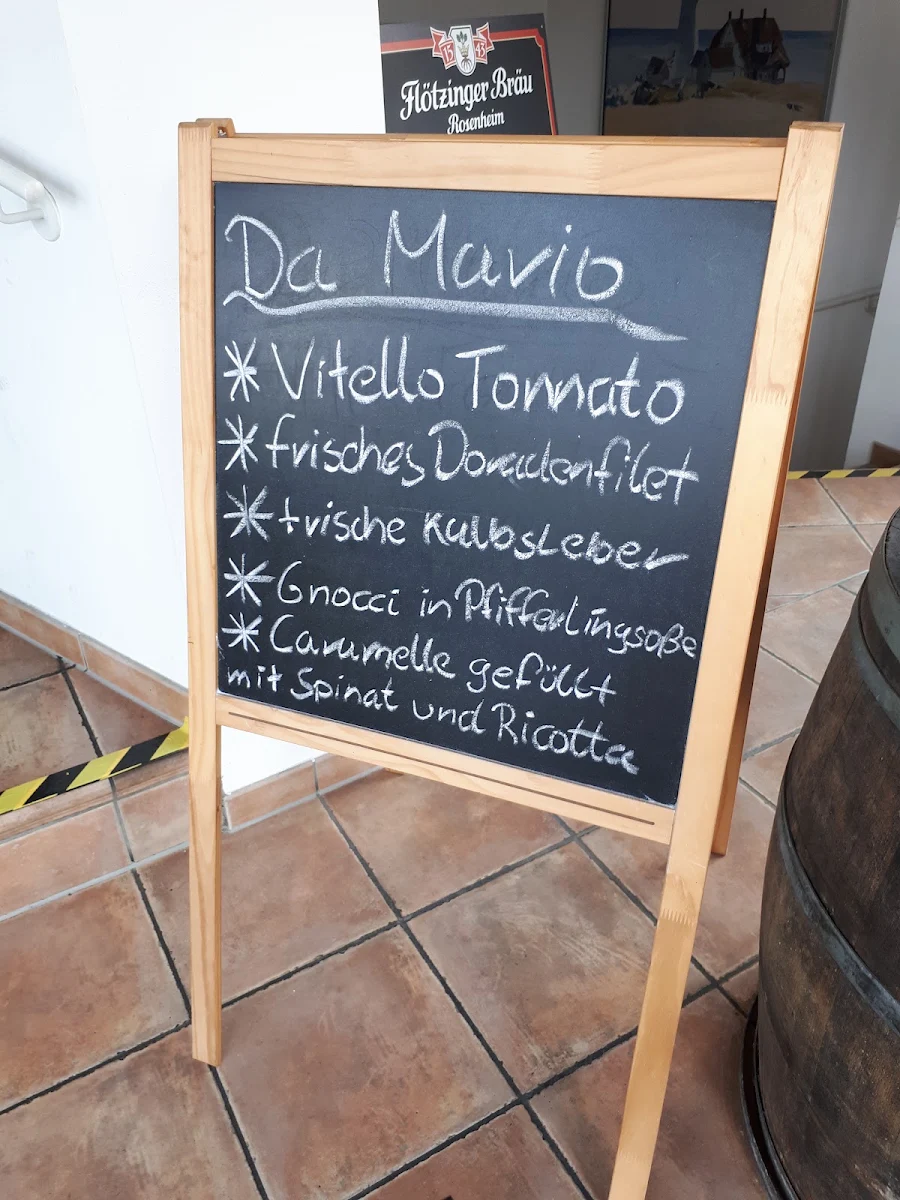 15 43
Flötzinger Bräu
Rosenheim
Da Mavio
* Vitello Tonnato
* frisches Doradenfilet
* frische Kalbsleber
* Gnocci in Pfifferlingsoße
* Caramelle gefüllt
mit Spinat und Ricotta